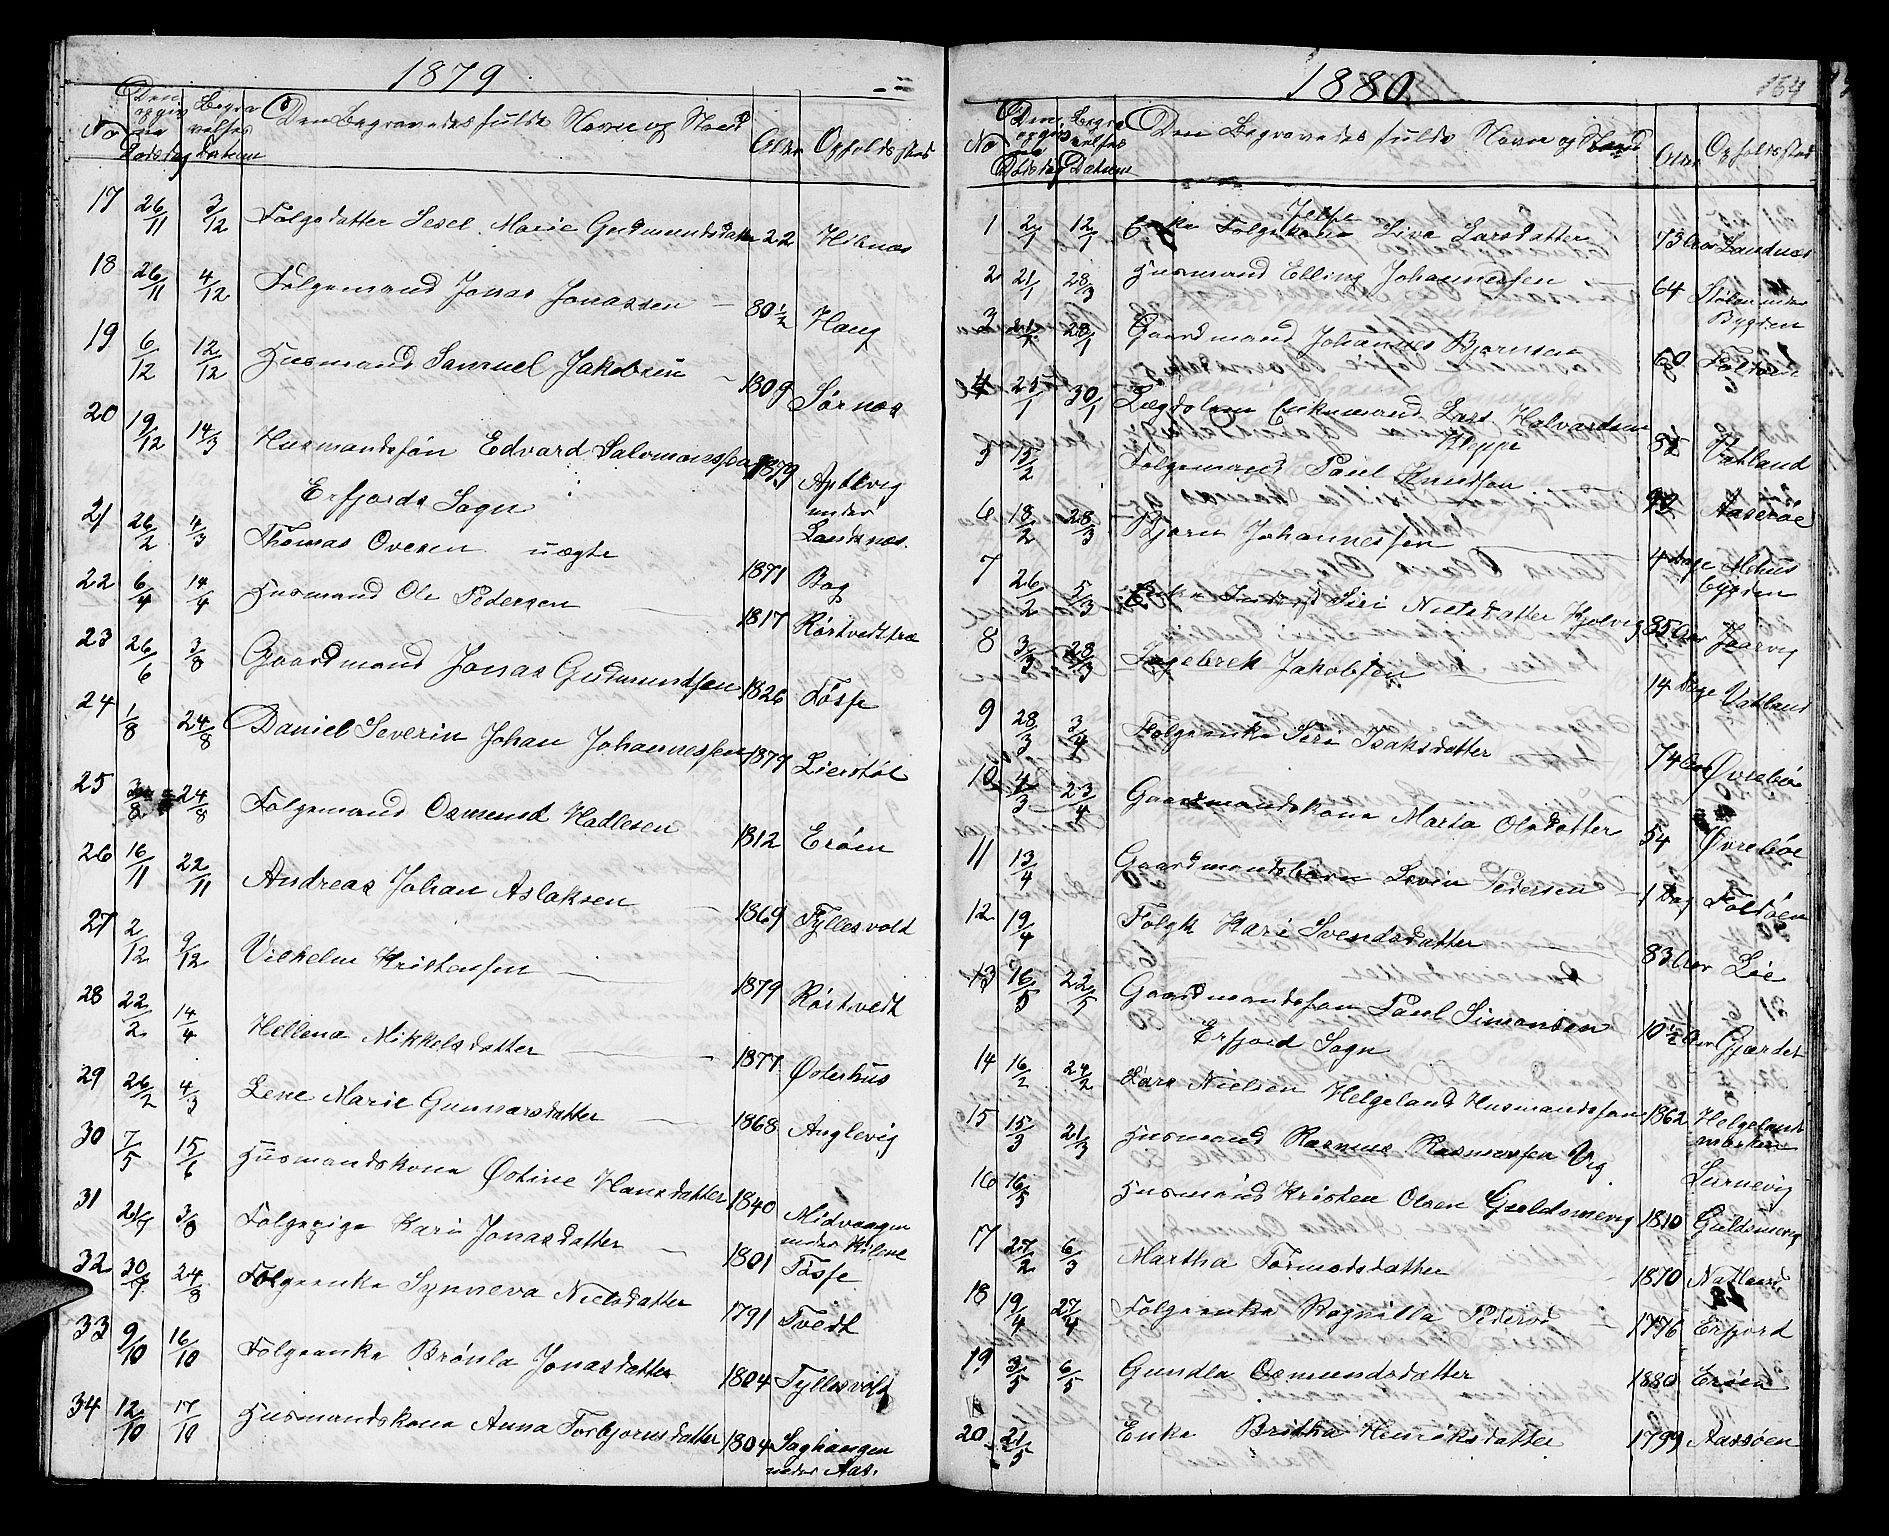 1879
No Den opgivne Dødsdag Begravelses Datum Den Begravedes fulde Navn og Stand Alder Opholdssted
17 26/11 3/12 Følgedatter Sesel Marie Gudmundsdatter 22 Hiknæs
18 26/11 4/12 Følgemand Jonas Jonassen — 80 1/2 Haug
19 6/12 12/12 Husmand Samuel Jakobsen — 1809 Sørnæs
20 19/12 14/3 Husmandssøn Edvard Salomonssen 1879 Aptevig under Landsnæs.
Erfjords Sogn
21 26/2 4/3 Thomas Ovesen uægte 1871 Bog
22 6/4 14/4 Husmand Ole Pedersen — 1817 Røstvedttræ
23 26/6 3/8 Gaardmand Jonas Gudmundsen 1826 Tøsse
24 1/8 24/8 Daniel Severin Johan Johannessen 1879 Lierstøl
25 /8 24/8 Følgemand Osmund Hadlesen 1812 Erøen
26 16/11 22/11 Andreas Johan Aslaksen — 1869 Tyllesvold
27 2/12 9/12 Vilhelm Kristensen — 1879 Røstvedt
28 22/2 14/4 Hellena Mikkelsdatter — 1877 Østerhus
29 26/2 4/3 Lene Marie Gunnarsdatter — 1868 Anglevig
30 7/5 15/6 Husmandskone Østine Hansdatter 1840 Midvaagen under Kilene
31 21/7 3/8 Følgepige Kari Jonasdatter — 1801 Tøsse
32 30/7 24/8 Følgeenke Synneva Nielsdatter 1791 Tvedt
33 9/10 16/10 Følgeenke Brønla Jonasdatter 1804 Tyllesvold
34 12/10 17/10 Husmandskone Anna Torbjørnsdatter 1804 Saghaugen under Aas.
1880.
164
No Den opgivne Dødsdag Begravelses Datum Den Begravedes fulde Navn og Stand Alder Opholdssted
1 2/1 12/1 Enke Følgekone Jelse Siva Larsdatter 73 Aar Landnæs
2 21/1 28/3 Husmand Elling Johannessen 64 Stølen under Bygden
3 28/1 Gaardmand Johannes Bjørnsen 60 Foldøen
4 25/1 30/1 Lægdslem Enkemand Lars Halvardsen Kleppe 82 Vatland
5 15/2 Følgemand Paul Knudsen 93 Aaserøe
6 18/2 28/3 Bjørn Johannessen — 4 Dage Mehus bygden
7 26/2 5/3 Enke Inderst Siri Nielsdatter Hjelvig 85 Aar Jearvig
8 3/3 28/3 Ingebret Jakobsen — 14 Dage Vatland
9 28/3 3/4 Følgeenke Siri Isaksdatter 74 Aar Øvrebøe
10 4/3 23/4 Gaardmandskone Marta Olsdatter 54 Øvrebøe
11 13/4 Gaardmandsbarn Lovin Pedersen — 1 Dag Foldøen
12 19/4 Følgk Kari Svendsdatter — 83 Aar Lie
13 16/5 22/5 Gaardmandssøn Paul Simonsen 10 1/2 Aar Gjærdet
Erfjord Sogn
14 16/2 24/2 Lars Nielsen Helgeland Husmandssøn 1862 Helgelandsmarken
15 15/3 21/3 Husmand Rasmus Rasmussen Vig Lurnevig
16 16/5 Husmand Kristen Olsen Gueldsmevig 1810 Guldsmevig
17 27/2 6/3 Martha Tormodsdatter 1870 Natland
18 19/4 27/4 Følgeenke Ragnilla Pedersd — 1776 Erfjord
19 3/5 6/5 Gundla Osmundsdatter 1880 Erøen
20 21/5 Enke Britha Henriksdatter 1799 Aasøen